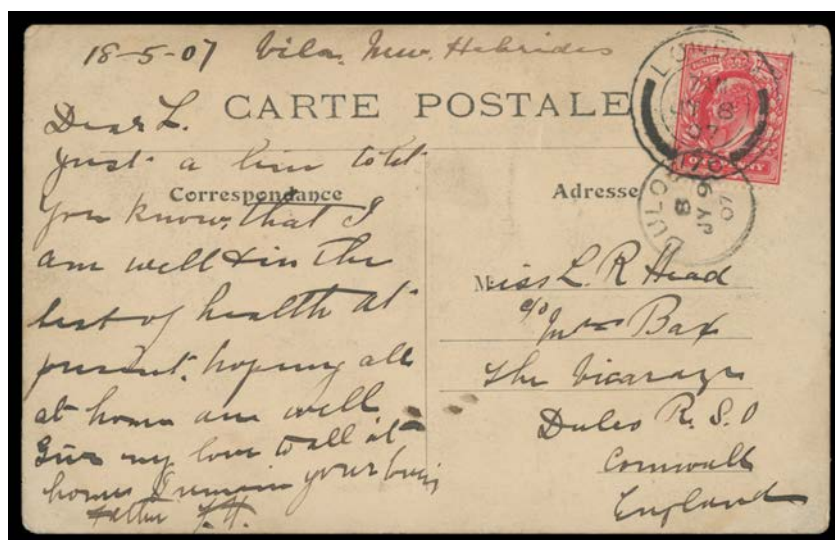 18-5-07 Vila. New. Hebrides
CARTE POSTALE
Dear L.
Just a line to let
Correspondance
you know, that I
am well & in the
best of health at
present, hoping all
at home are well
Give my love to all at
home I remain your loving
Father F.H.
Adresse
Miss L. R Head
c/o Mrs Bax
The Vicarage
Duloe R. S. O
Cornwall
England
LONDON
JY 8
07
DULOE
8
JY 9
07